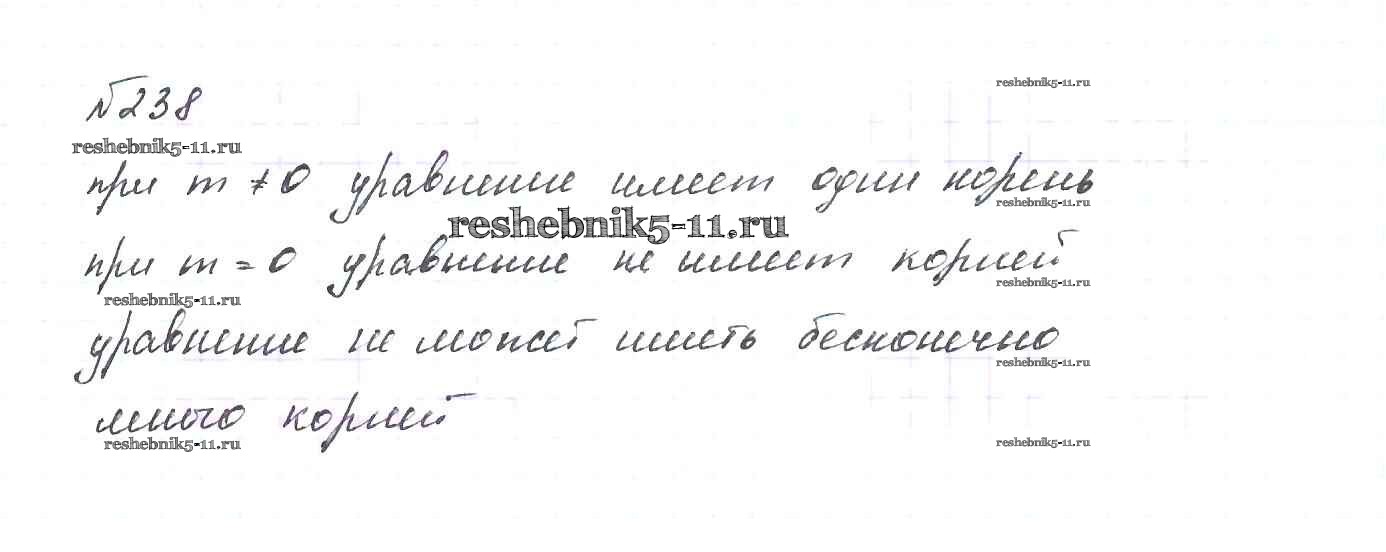 №238
reshebnik5-11.ru
reshebnik5-11.ru
при m ≠ 0 уравнение имеет один корень
reshebnik5-11.ru
reshebnik5-11.ru
при m = 0 уравнение не имеет корней
reshebnik5-11.ru
reshebnik5-11.ru
уравнение не может иметь бесконечно
reshebnik5-11.ru
много корней
reshebnik5-11.ru
reshebnik5-11.ru